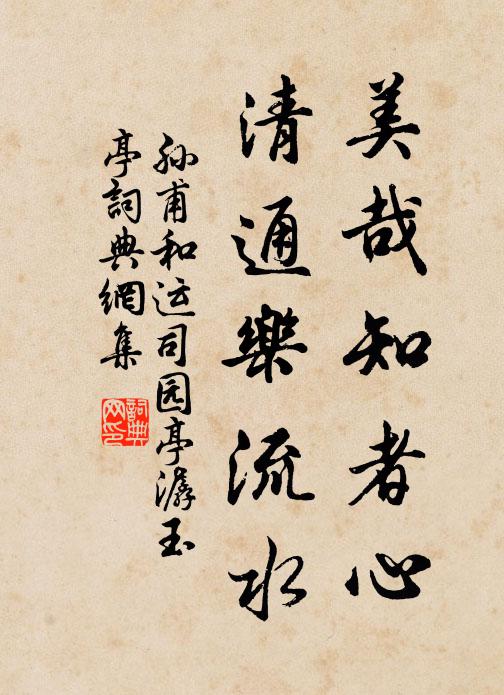 美哉知者心
清通樂流水
孙甫和运司园亭潺玉
亭詞典網集
詞典
网印